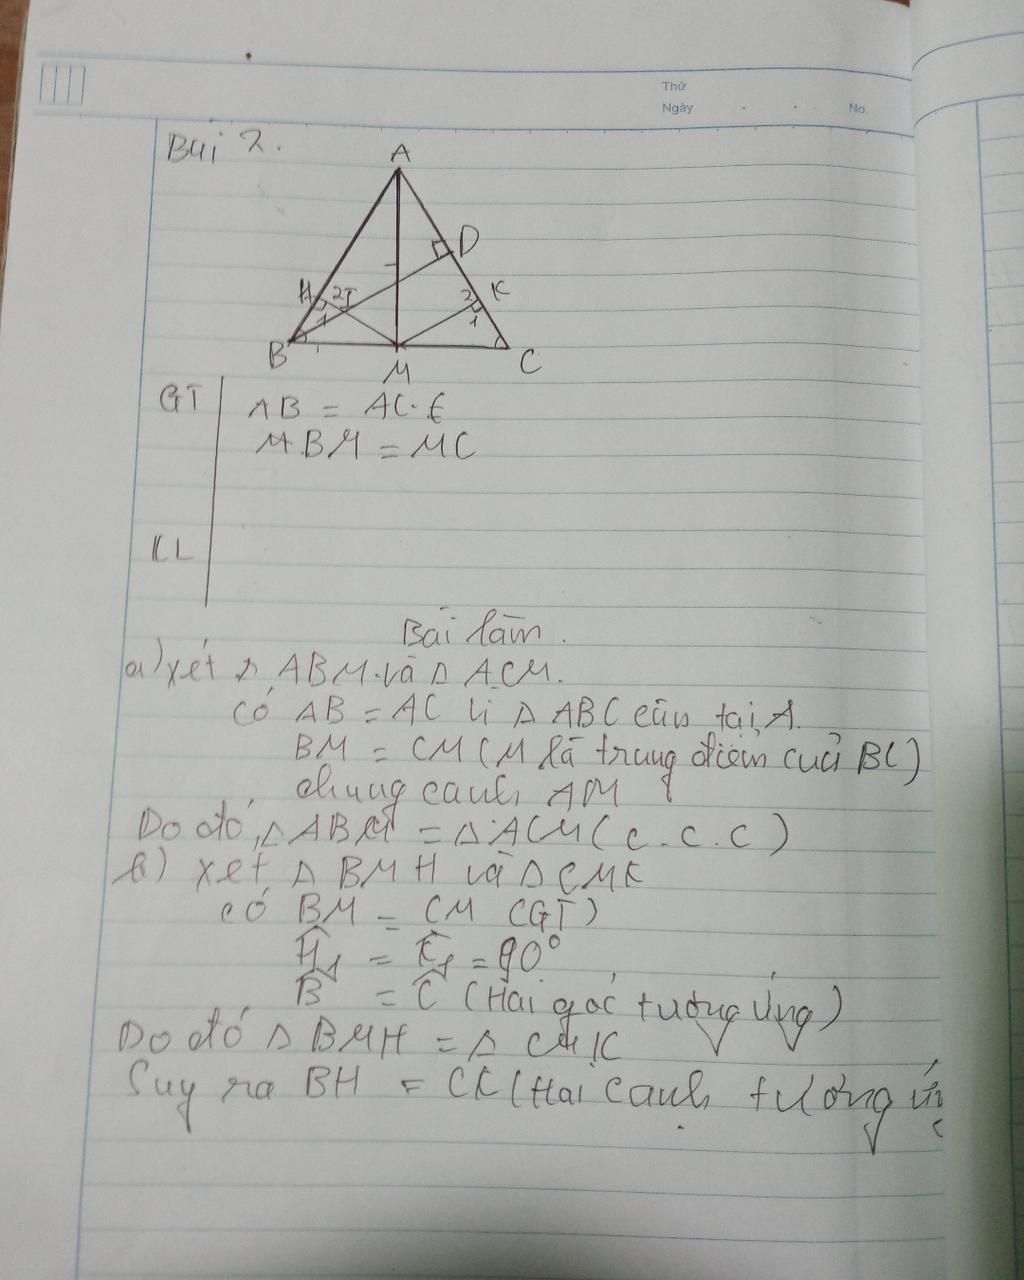 Thứ
Ngày . . No.
Bài 2.
A
D
H 2 I 2 K
1 1
B M C
GT AB = AC. E
M.BM = MC
KL
Bài làm.
a) xét Δ ABM và Δ ACM.
có AB = AC vì Δ ABC cân tại A.
BM = CM (M là trung điểm cuả BC)
chung cạnh AM
Do đó, Δ ABM = Δ ACM (c.c.c)
b) xét Δ BMH và Δ CMK
có BM = CM (GT)
Ĥ₁ = K̂₁ = 90°
B̂ = Ĉ (Hai góc tương ứng)
Do đó Δ BMH = Δ CMK
Suy ra BH = CK (Hai cạnh tương